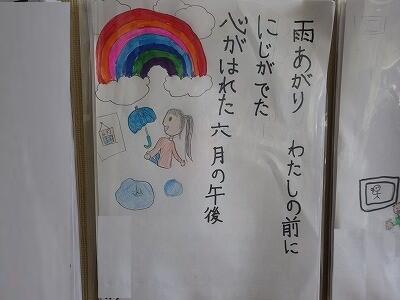 雨あがり　わたしの前に
にじがでた
心がはれた　六月の午後